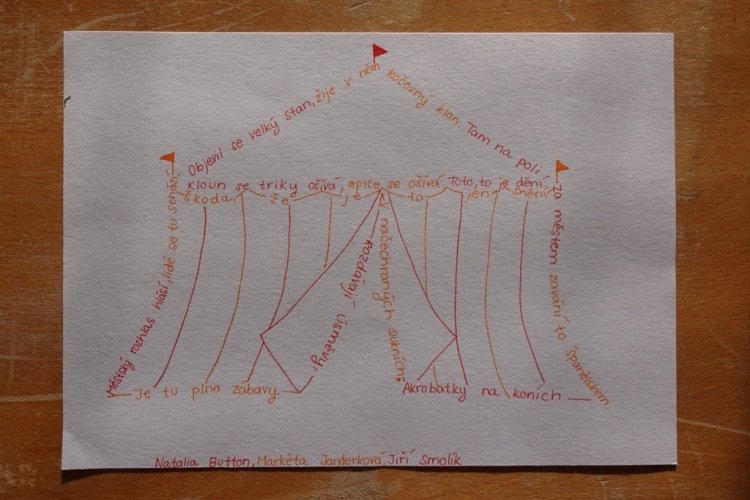 Objevil se velký stan, žije v něm kočovný klan. Tam na poli
za městem zavání to španělskem
Městský rozhlas hlásí, lidé se tu schází.
Kloun se triky ošívá, opice se ošívá. Toto, to je dění,
škoda, že je to jen snění.
Je tu plno zábavy.
Akrobatky na koních
V načechraných sukních
rozdávají úsměvy.
Natalia Button, Markéta Janderková, Jiří Smolík